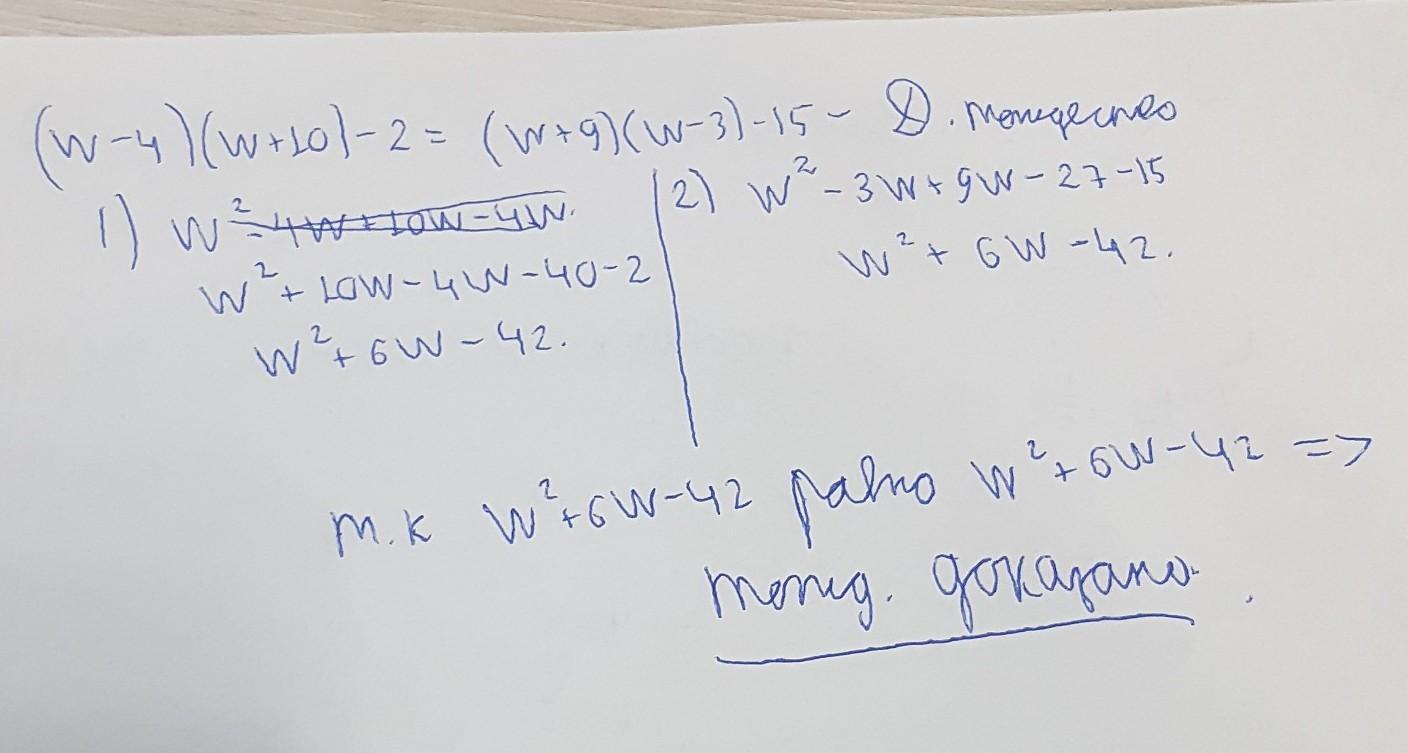 (w-4)(w+10)-2 = (w+9)(w-3)-15 - Д. тождество
1) w²-4w+10w-4w.
w²+10w-4w-40-2
w²+6w-42.
2) w²-3w+9w-27-15
w²+6w-42.
т.к w²+6w-42 равно w²+6w-42 =>
тожд. доказано.